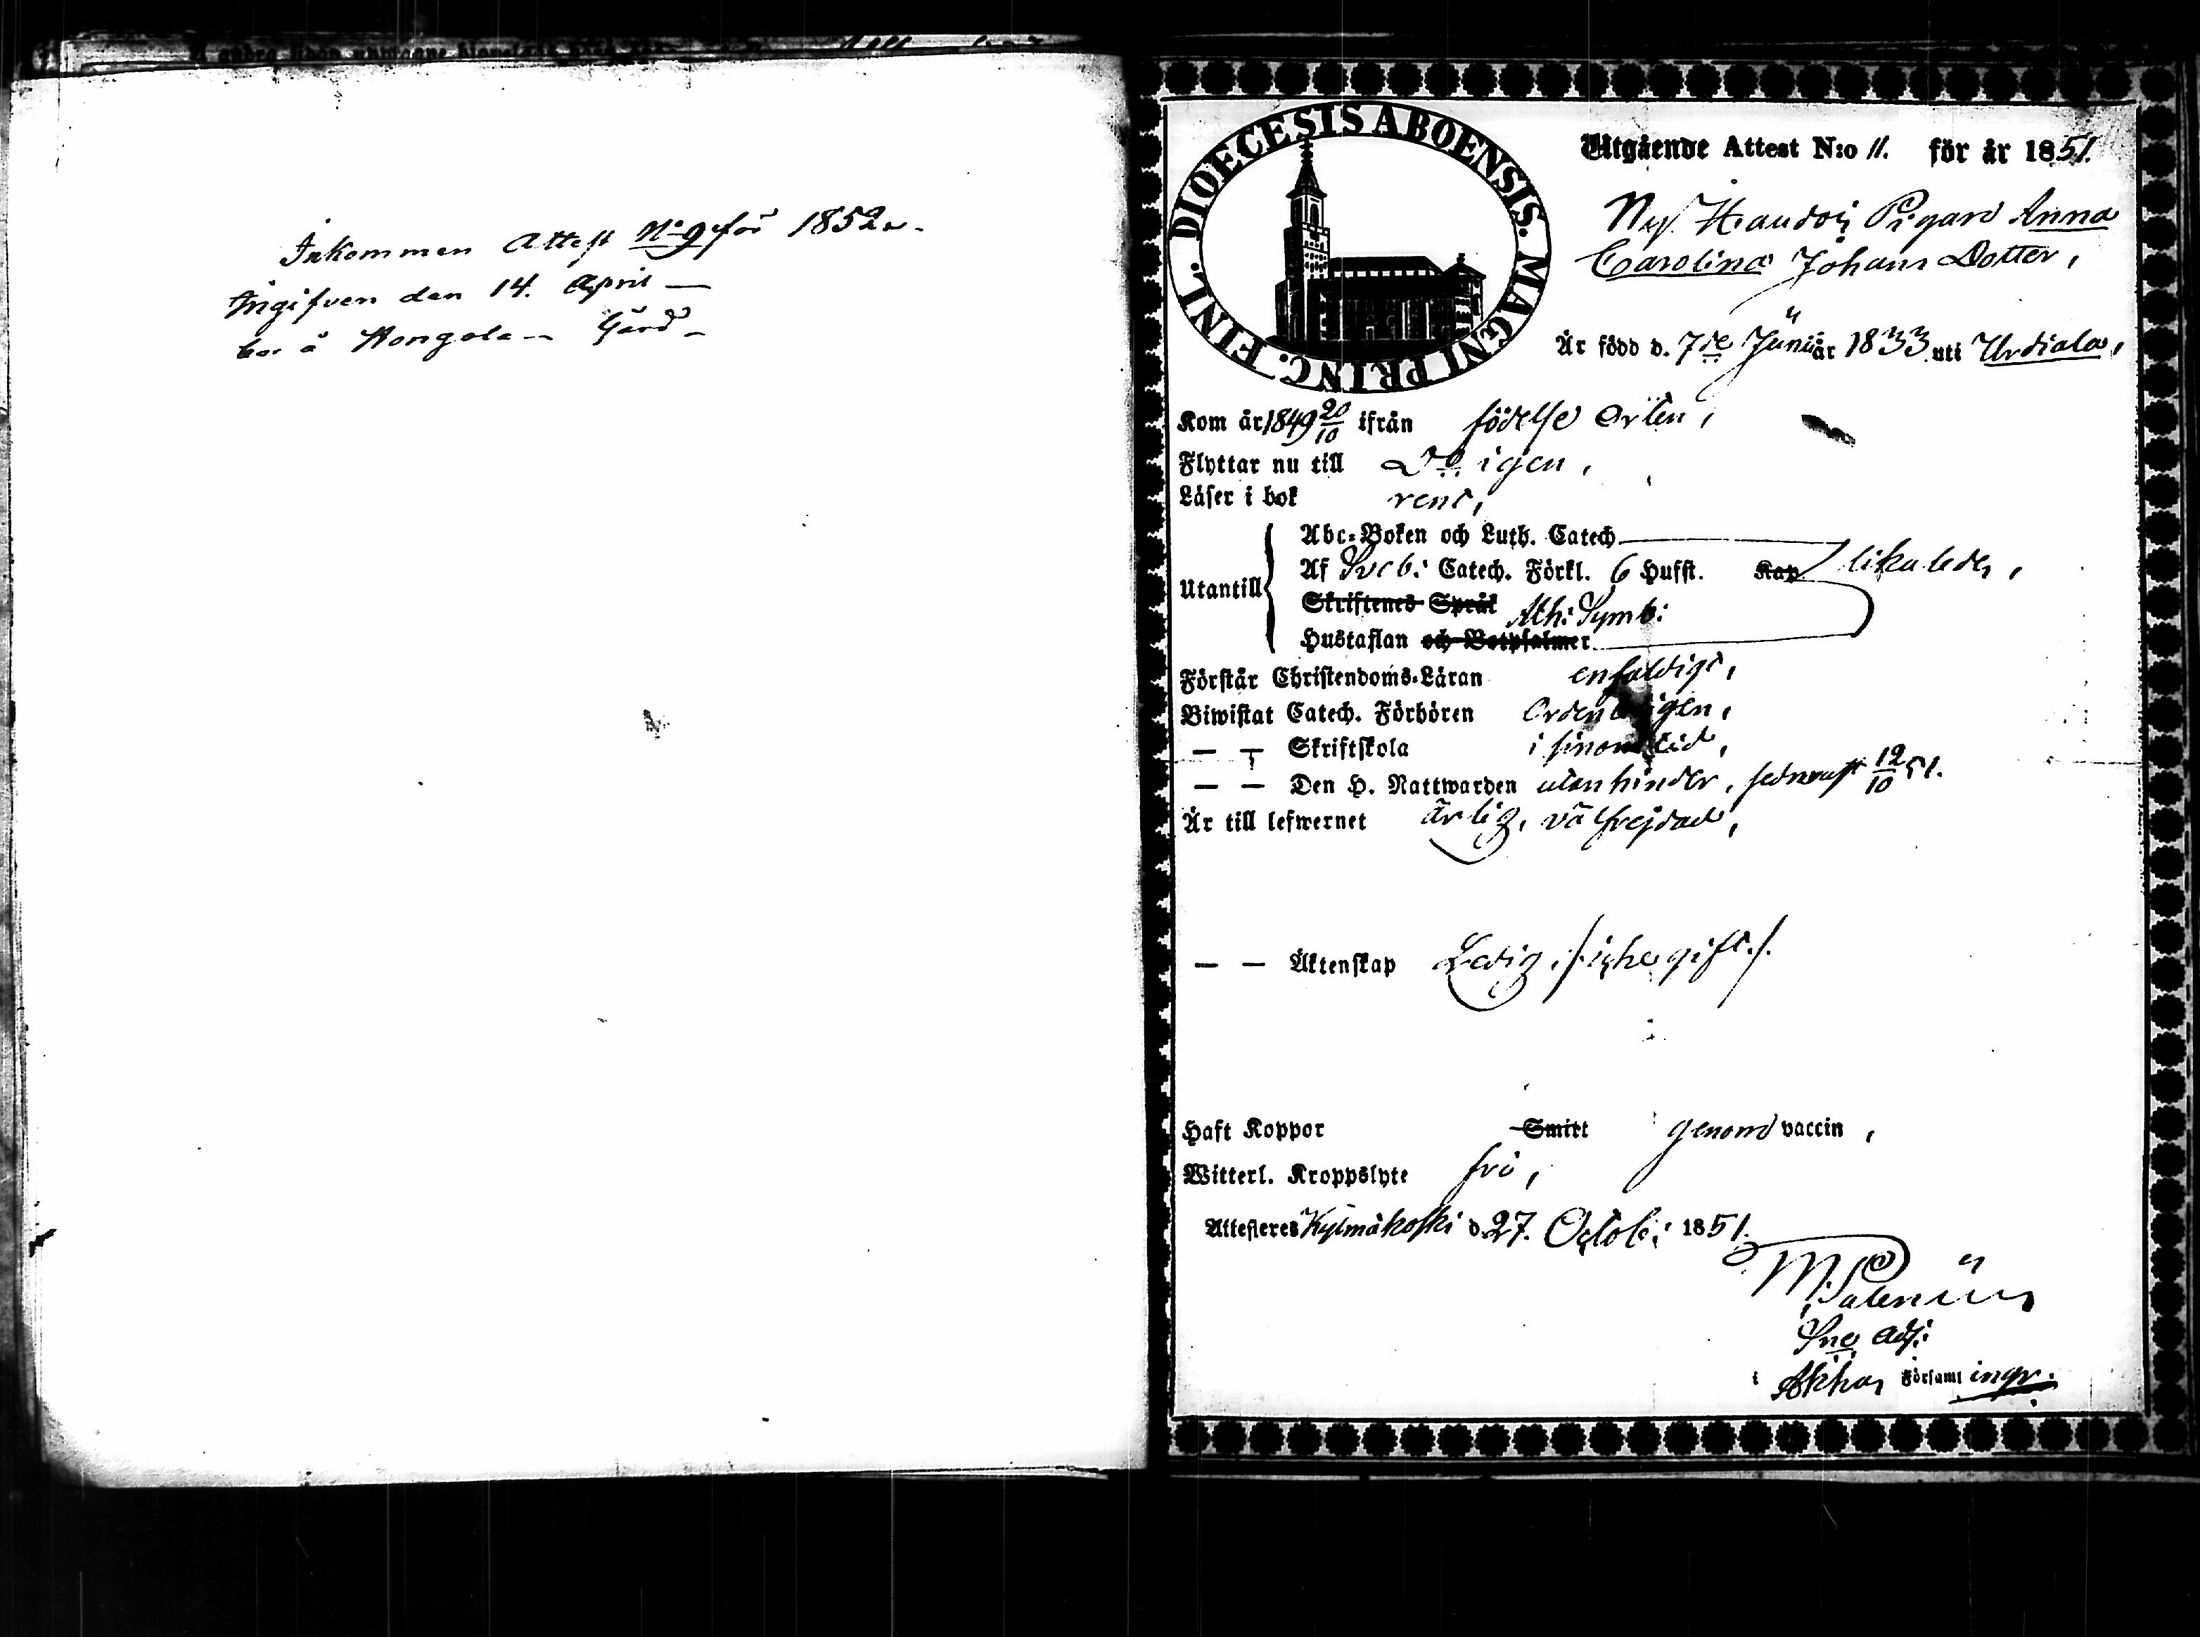 Inkommen Attest No 9 för 1852
Ingifven den 14. April —
bor å Hongola — Gård —
DIOECESIS ABOENSIS. MAGNI PRINC. FINL.
Utgående Attest N:o 11. för år 1851.
Pigan Anna
Carolina Johans Dotter,
Är född d. 7de Junii år 1833 uti Urdiala,
Kom år 1849 20/10 ifrån födelse Orten,
Flyttar nu till Do igen,
Läser i bok rent,
Abc-Boken och Luth. Catech
Utantill Af Sveb: Catech. Förkl. 6 Hufst. Kap likaledes,
Skriftenes Språk Ath: Symb:
Hustaflan och Botpsalmer
Förstår Christendoms-Läran enfaldigt,
Biwistat Catech. Förhören Ordenteligen,
— — Skriftskola i sinom tid,
— — Den H. Nattwarden utan hinder, sednast 12/10 51.
Är till lefwernet ärlig, välfrejdad,
— — Äktenskap Ledig /: icke gift :/.
Haft Koppor Smitt genom vaccin,
Witterl. Kroppslyte fri,
Attesteres Kylmäkoski d. 27. Octob: 1851.
M. Palenius
Sns Adj:
i Akkas Församl ingr.